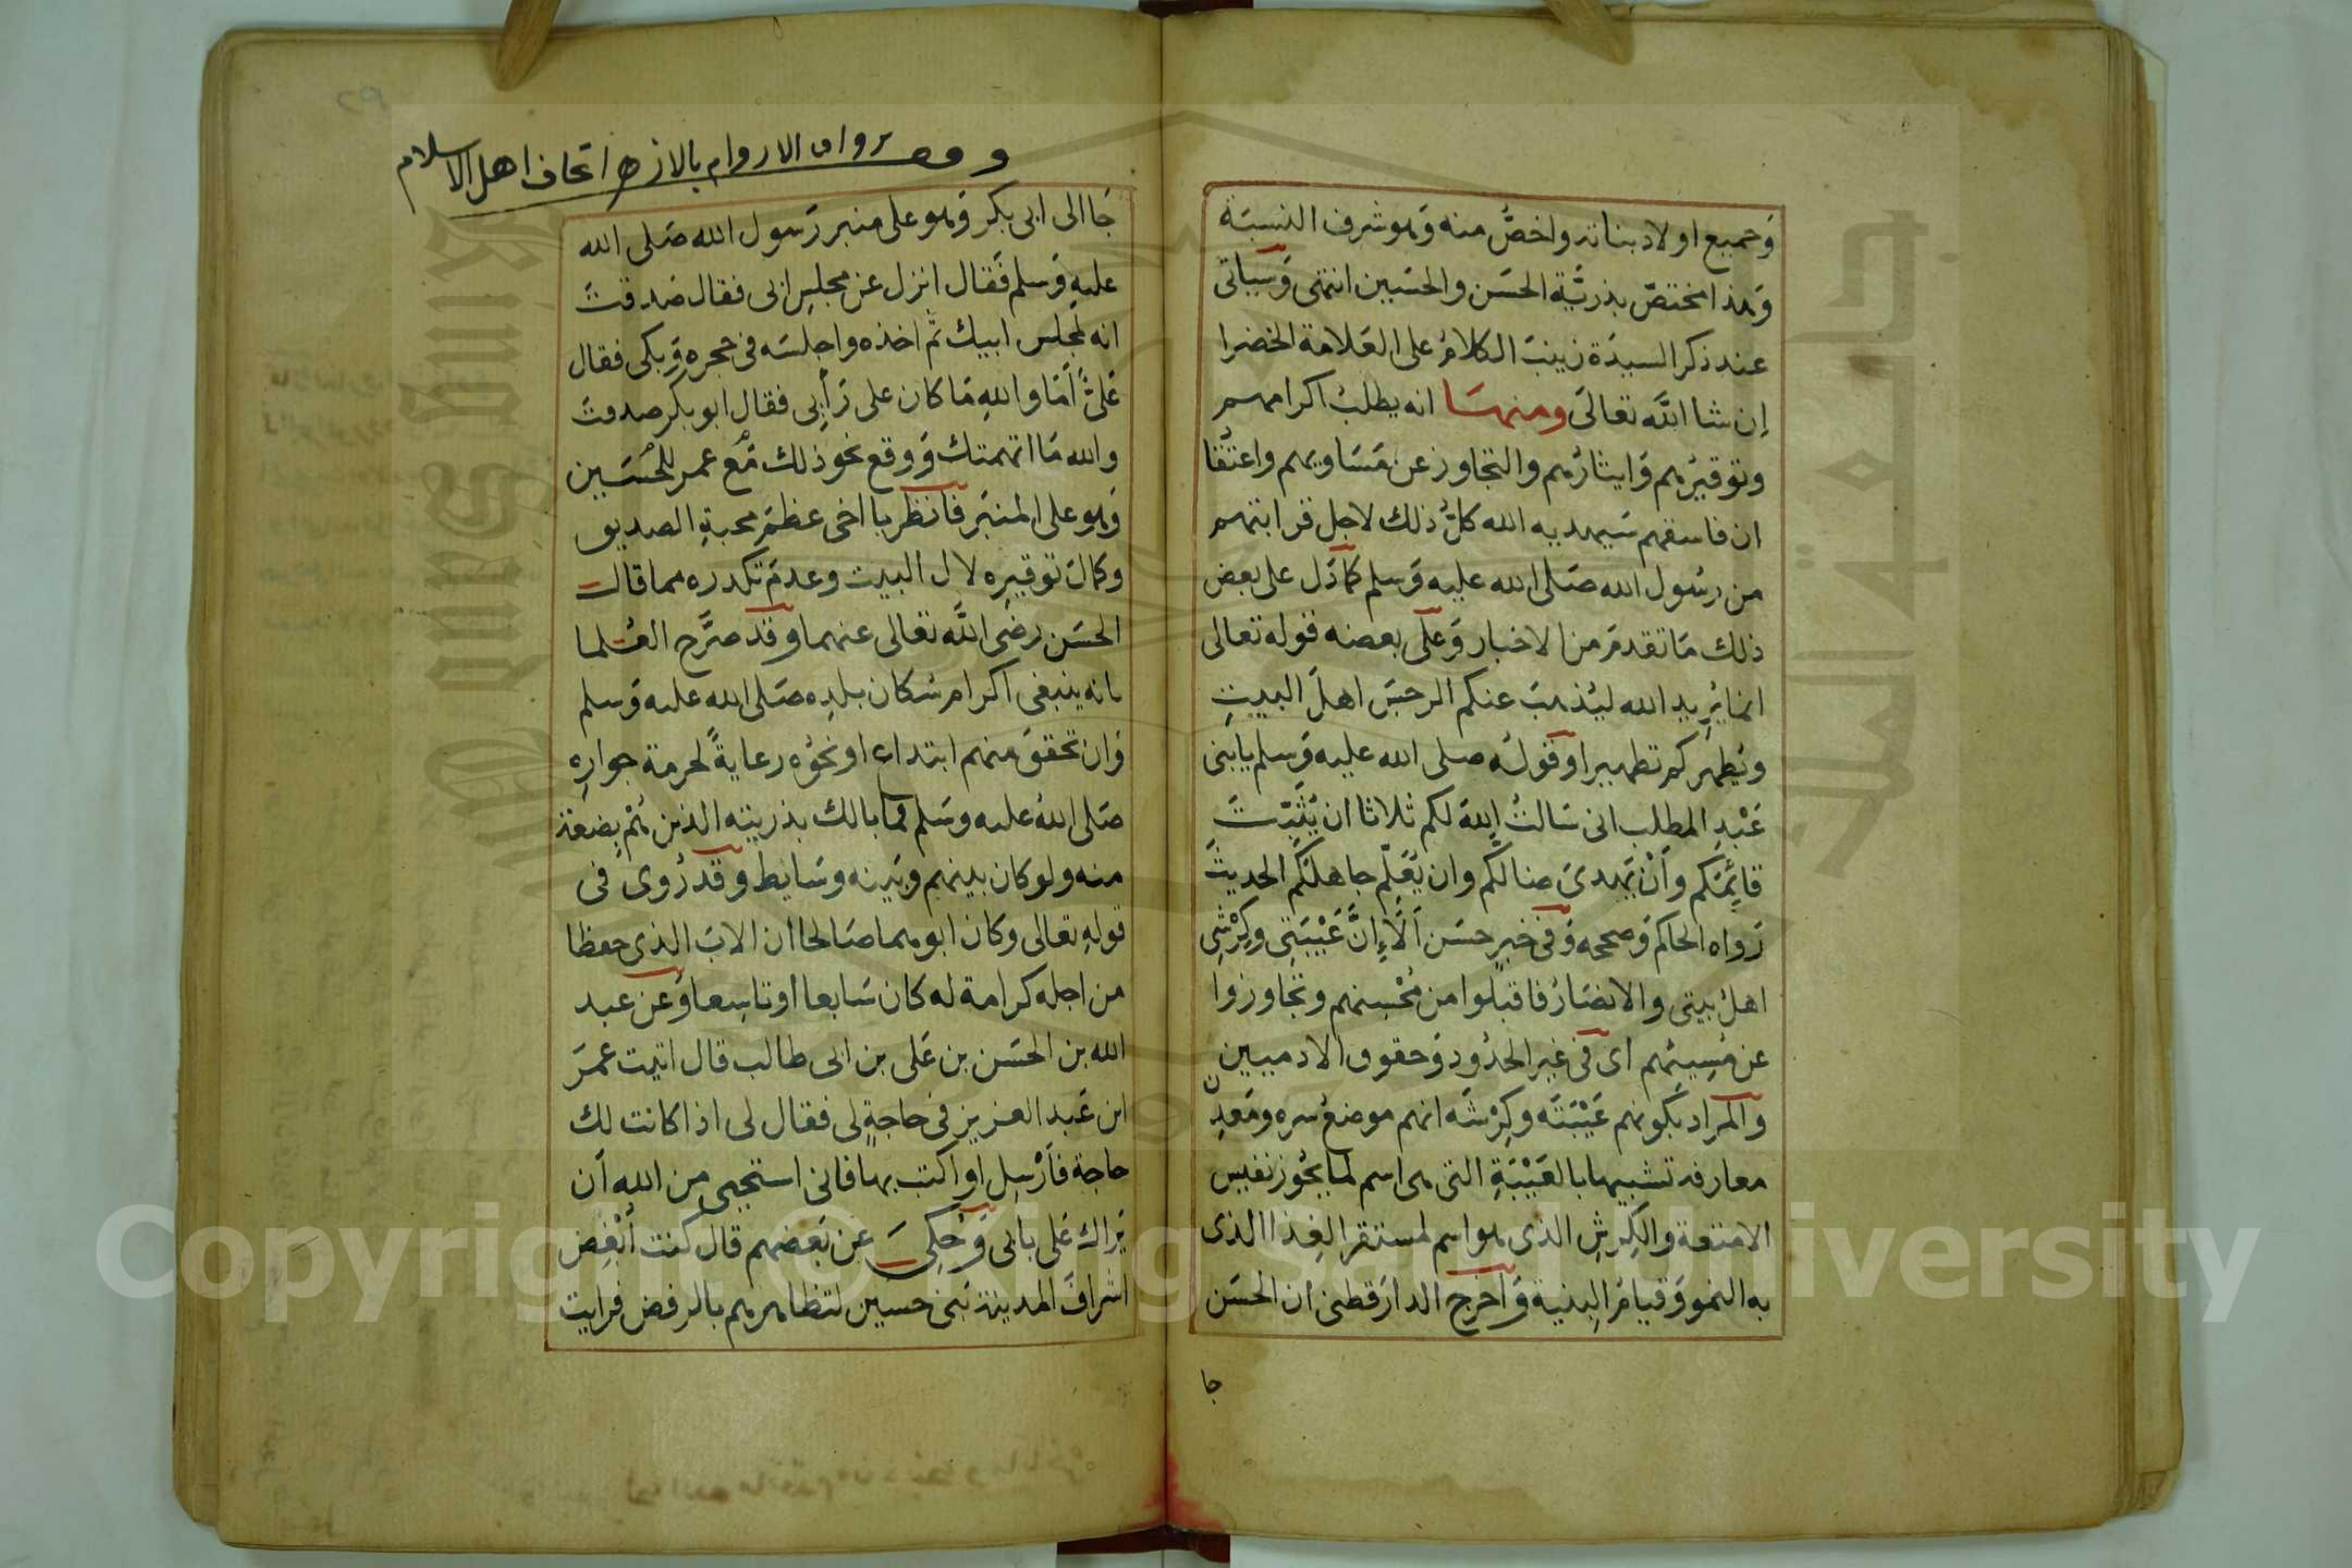 وجميع اولاد بناته واخصُّ منه وهو شرف النسبة
وهذا مختصّ بذريَّة الحسَن والحسَين انتهى وَسَياتى
عند ذكر السيدَة زينبَ الكلامُ على العَلامة الخضرا
إن شا اللَّه تعالىَ ومنهسَا انه يطلبُ اكرامهم
وتوقيرُهم وَايثارُهم والتجاوز عن مَسَاويهم واعتقا
ان فاسقهم سَيهديه الله كلُّ ذلك لاجل قرابتهم
من رسُول الله صَلى الله عليه وَسلم كما دَل على بعض
ذلك مَا تقدمَ من الاخبار وَعلى بعضه قوله تعالى
انما يُريد الله ليُذهبَ عنكم الرجسَ اهلَ البيتِ
ويُطهركم تطهيرا وقولُه صلى الله عليه وَسلم يا بنى
عَبْدِ المطلب انى سَالتُ اللهَ لكم ثلاثا ان يُثَبِّتَ
قائِمَكم وأنْ يَهدىَ ضالكُم وان يُعَلِّم جاهلَكُم الحديثَ
رَواه الحاكم وَصححه وَفى خبرٍ حسَن اَلَا إِنَّ عَيْبَتِى وكِرْشِى
اهلُ بيتى والانصَارُ فاقبَلوا من مُحْسنهم وتجَاوزوا
عن مُسِيئهم اى فى غير الحدُود وَحقوق الادميين
والمرَاد بكونهم عَيْبَتَه وكِرْشَه انهم موضعُ سره ومَعدِن
معارفه تشبيها بالعَيْبَةِ التى هى اسم لما يحُوز نفيس
الامتعة والكِرشِ الذى هو اسم لمستقر الغِذا الذى
به النمو وَقيامُ البِنية وَاخرج الدارَقطنى ان الحسَن
جا
ورواق الاروام بالازهر اتحاف اهل الاسلام
جَا الى ابى بكر وَهو على منبر رَسول الله صَلى الله
عليهِ وَسلم فَقال انزل عن مجلسِ ابى فقال صَدقتَ
انه لَمجلس ابيك ثم اخذه واجلسَه فى حجره وَبكى فقال
عَلىٌّ اَمَا واللهِ مَا كان على رَأيى فقال ابو بكر صدقتَ
والله مَا اتهمتك وَوقع نحو ذلك مَع عمر للحُسَين
وَهو على المنبَر فانظر يا اخى عظمَ محبةِ الصديق
وكمالَ توقيرِه لال البيت وعدمَ تكدره مما قال
الحسَن رضى اللَّه تعالى عنهما وقد صرَّح العُلما
بانه ينبغى اكرام سُكان بلدِه صَلى الله عليه وَسلم
وَان تحققَ منهم ابتداع اونحوُه رعايةً لحرمة جوارِه
صَلى اللهُ عليه وسَلم فما بالك بذريته الذين هُمْ بِضعَة
منه ولو كان بينهم وَبَينه وسَايط وقد رُوى فى
قولهِ تعالى وكان ابوهما صَالحا ان الابَ الذى حفظا
من اجله كرامة له كان سَابعا او تاسِعا وَعن عبد
الله بن الحسَن بن عَلى بن ابى طالب قال اتيت عمرَ
ابن عَبد العزيز فى حاجةٍ لى فقال لى اذا كانت لك
حاجة فأرْسِل او اكتب بها فانى استحيى من اللهِ أن
يَراك عَلى بابى وَحُكِىَ عن بَعضهم قال كنت أبْغِض
اشرافَ المدينة بَنى حسين لتظاهرهم بالرفض فرايت
Copyright © King Saud University